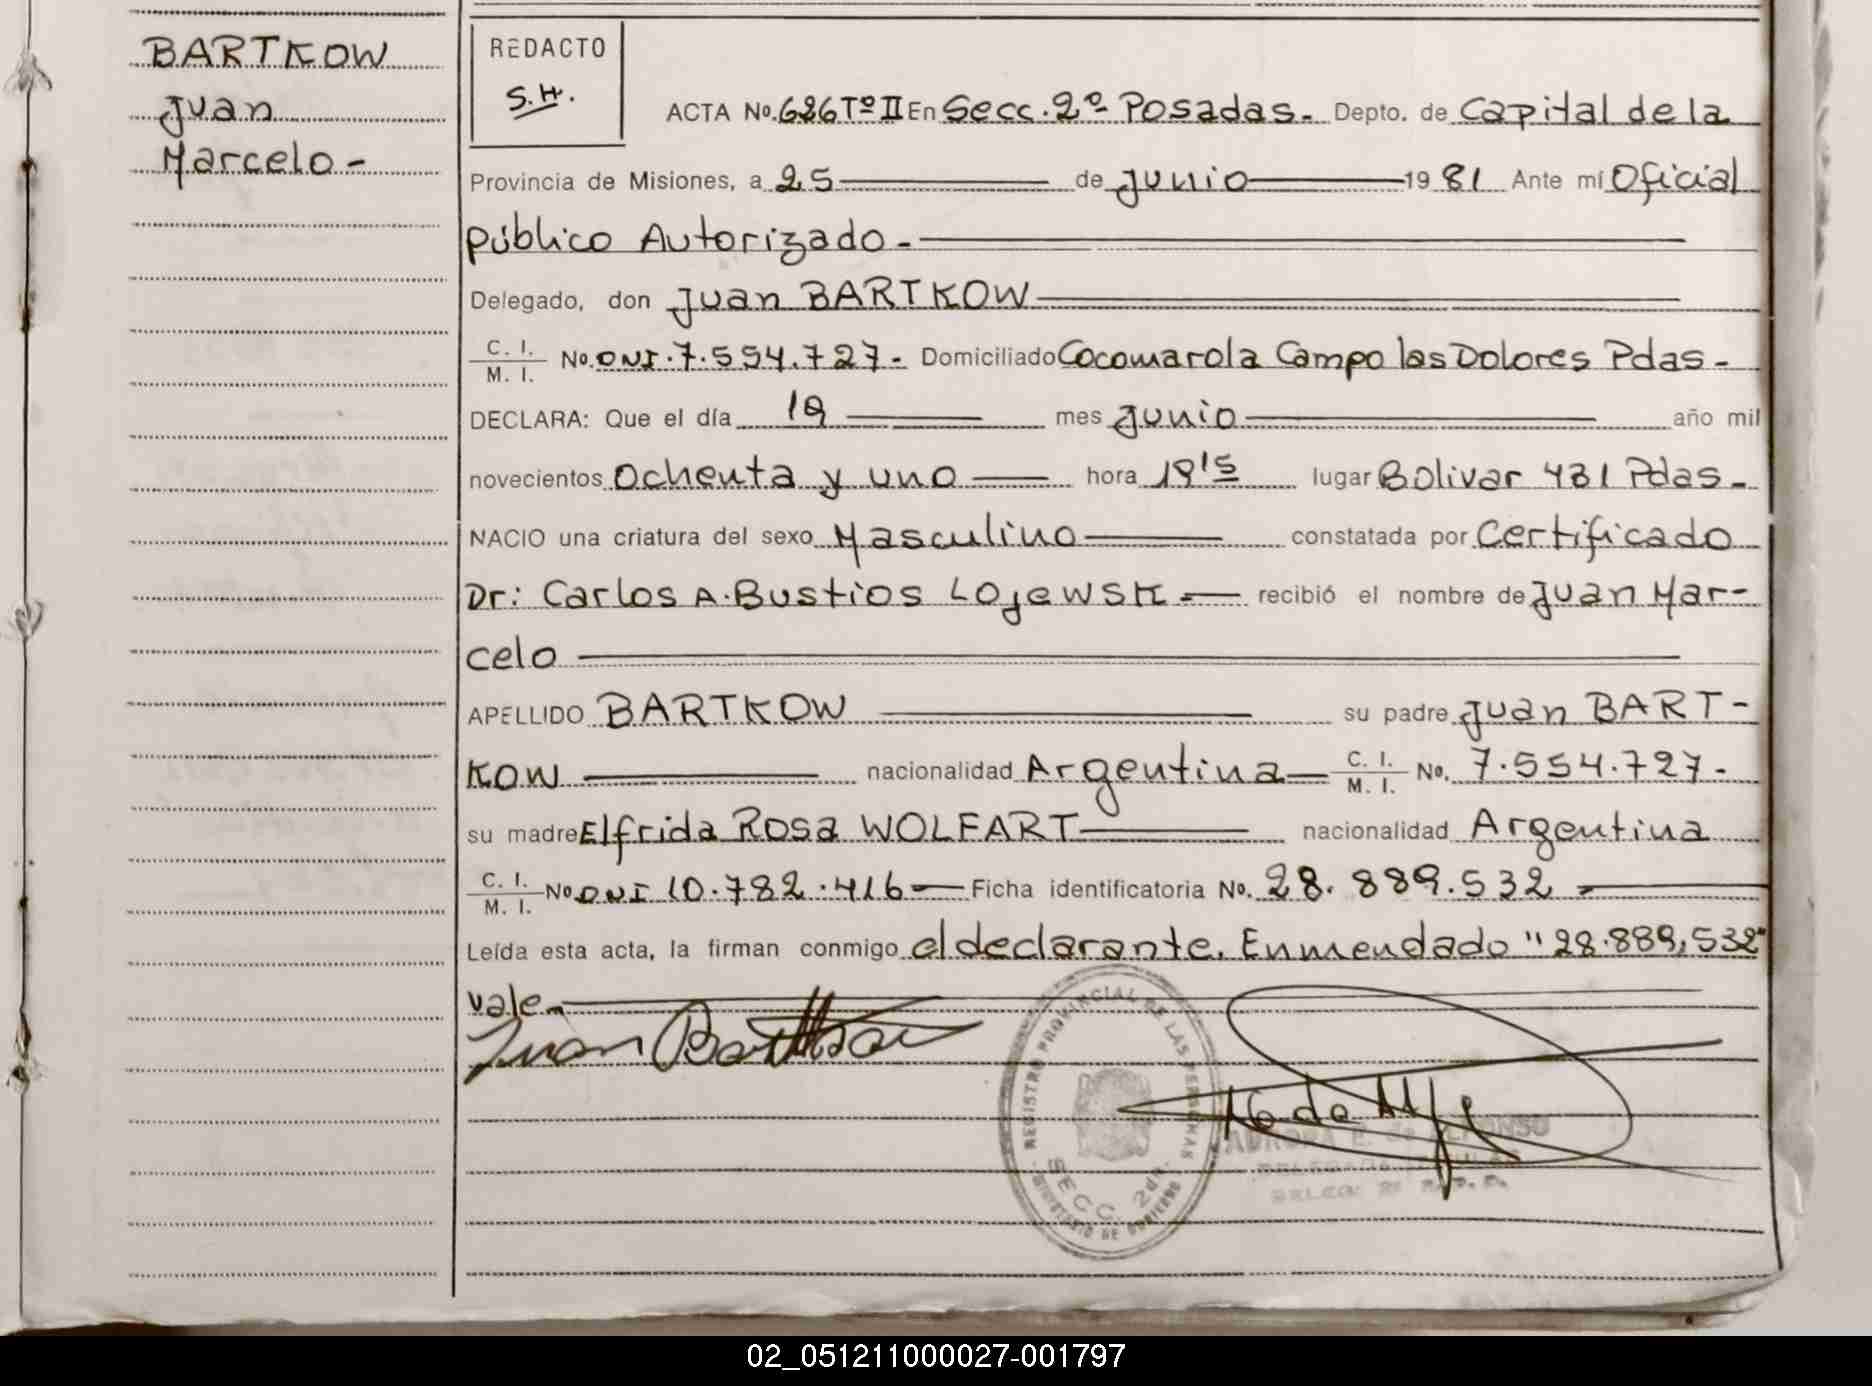 BARTKOW
Juan
Marcelo-
REDACTO
S.H.
ACTA No. 626 Tº II En Secc. 2º Posadas.- Depto. de Capital de la
Provincia de Misiones, a 25 de Junio 19 81 Ante mí Oficial
Público Autorizado.-
Delegado, don Juan BARTKOW
C. I. / M. I. No. DNI. 7.554.727- Domiciliado Cocomarola Campo las Dolores Pdas-
DECLARA: Que el día 19 mes Junio año mil
novecientos Ochenta y uno hora 19 15 lugar Bolivar 431 Pdas.-
NACIO una criatura del sexo Masculino constatada por Certificado
Dr: Carlos A. Bustios Lojewsk.- recibió el nombre de Juan Mar-
celo
APELLIDO BARTKOW su padre Juan BART-
KOW nacionalidad Argentina C. I. / M. I. No. 7.554.727-
su madre Elfrida Rosa WOLFART nacionalidad Argentina
C. I. / M. I. No. DNI 10.782.416 Ficha identificatoria No. 28.889.532
Leída esta acta, la firman conmigo el declarante. Enmendado "28.889,532"
vale.-
Juan Bartkow
REGISTRO PROVINCIAL DE LAS PERSONAS
SECC. 2da.
MINISTERIO DE GOBIERNO
AURORA E. de ALFONSO
02_051211000027-001797